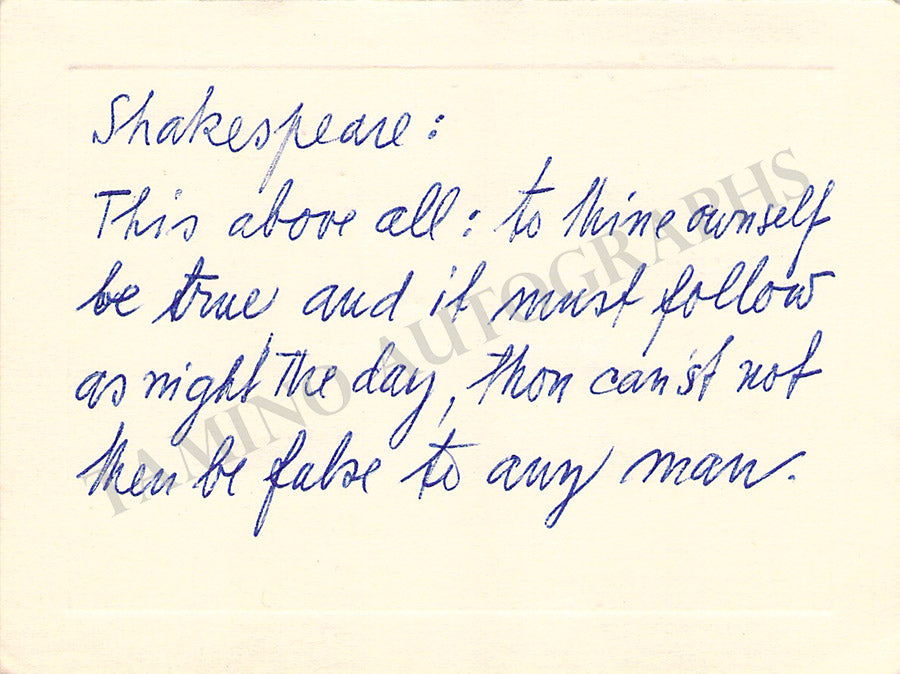 Shakespeare:
This above all: to thine ownself
be true and it must follow
as night the day, thou can'st not
then be false to any man.
TAMINO AUTOGRAPHS